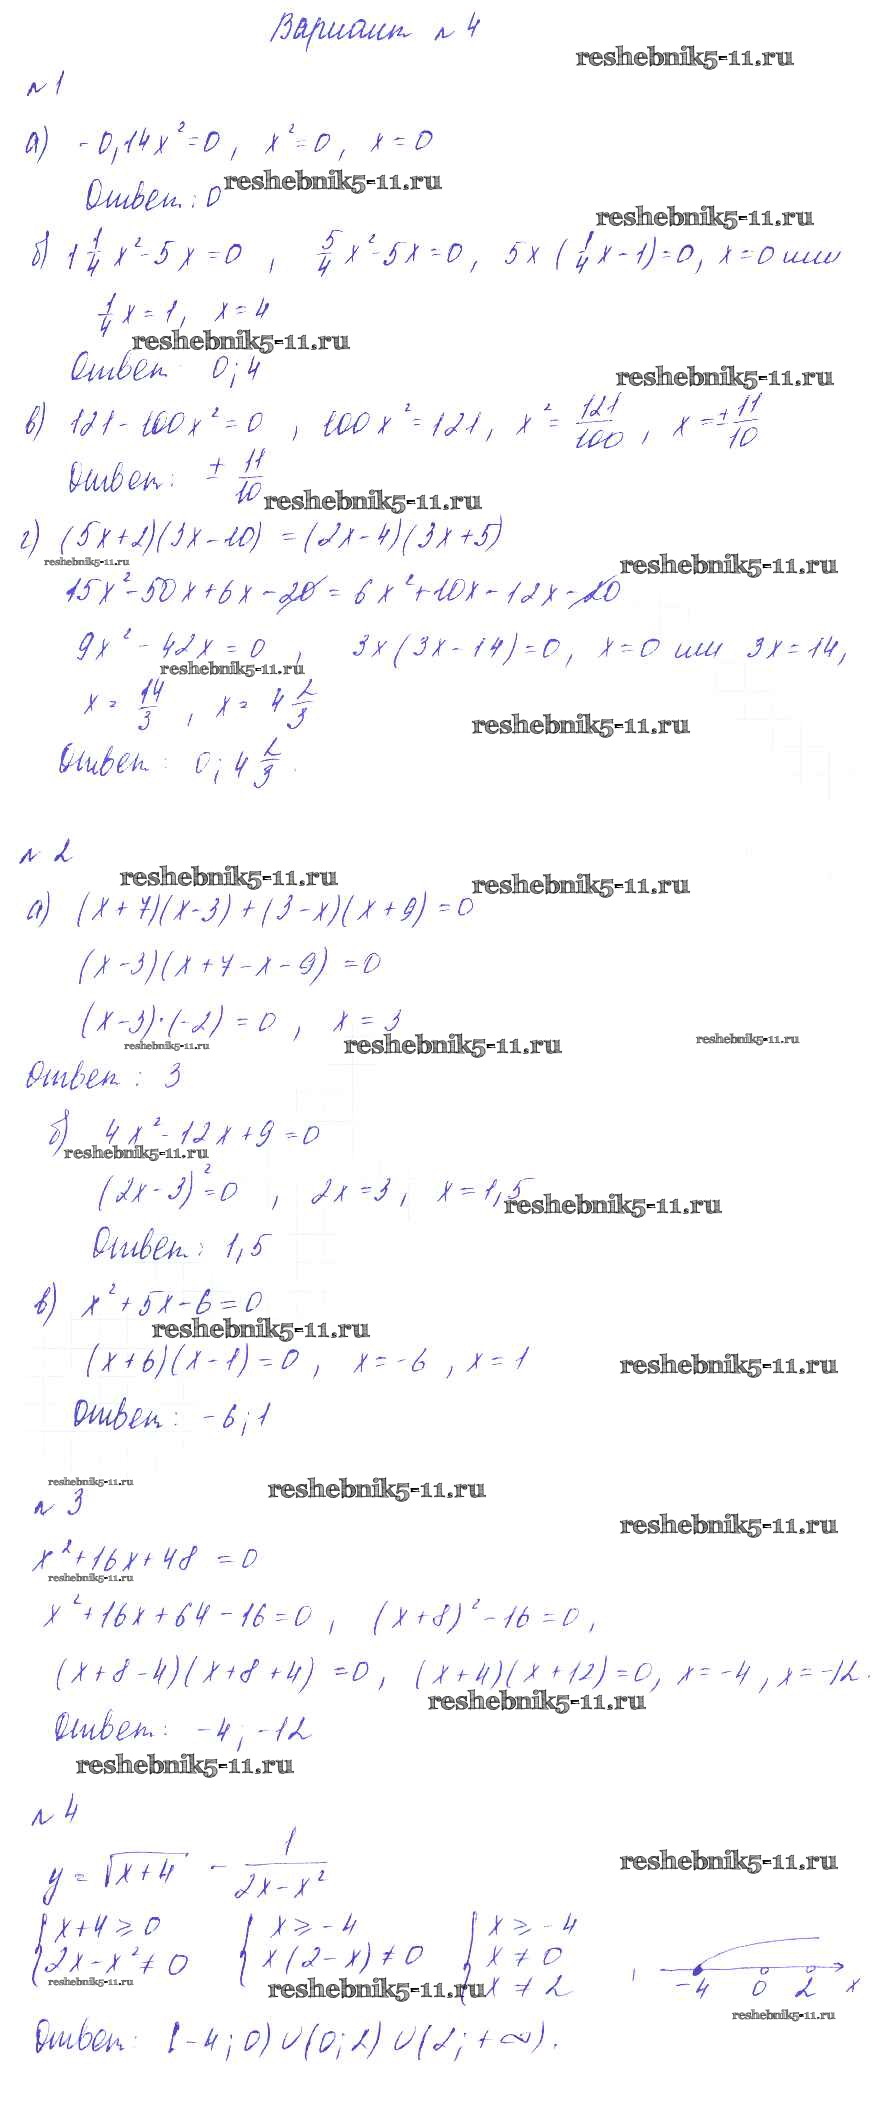 Вариант №4
reshebnik5-11.ru
№1
а) -0,14x²=0, x²=0, x=0
Ответ: 0
reshebnik5-11.ru
reshebnik5-11.ru
б) 1 1/4 x²-5x=0, 5/4 x²-5x=0, 5x(1/4 x-1)=0, x=0 или
1/4 x=1, x=4
reshebnik5-11.ru
Ответ 0; 4
reshebnik5-11.ru
в) 121-100x²=0, 100x²=121, x²=121/100, x=± 11/10
Ответ: ± 11/10
reshebnik5-11.ru
г) (5x+2)(3x-10)=(2x-4)(3x+5)
reshebnik5-11.ru
reshebnik5-11.ru
15x²-50x+6x-20=6x²+10x-12x-20
9x²-42x=0, 3x(3x-14)=0, x=0 или 3x=14,
reshebnik5-11.ru
x=14/3, x=4 2/3
reshebnik5-11.ru
Ответ: 0; 4 2/3.
№2
reshebnik5-11.ru
reshebnik5-11.ru
а) (x+7)(x-3)+(3-x)(x+9)=0
(x-3)(x+7-x-9)=0
(x-3)·(-2)=0, x=3
reshebnik5-11.ru
reshebnik5-11.ru
reshebnik5-11.ru
Ответ: 3
б) 4x²-12x+9=0
reshebnik5-11.ru
(2x-3)²=0, 2x=3, x=1,5
reshebnik5-11.ru
Ответ: 1,5
в) x²+5x-6=0
reshebnik5-11.ru
(x+6)(x-1)=0, x=-6, x=1
reshebnik5-11.ru
Ответ: -6; 1
reshebnik5-11.ru
reshebnik5-11.ru
№3
reshebnik5-11.ru
x²+16x+48=0
reshebnik5-11.ru
x²+16x+64-16=0, (x+8)²-16=0,
(x+8-4)(x+8+4)=0, (x+4)(x+12)=0, x=-4, x=-12.
reshebnik5-11.ru
Ответ: -4; -12
reshebnik5-11.ru
№4
y=√(x+4) - 1/(2x-x²)
reshebnik5-11.ru
{x+4≥0 {x≥-4 {x≥-4
{2x-x²≠0 {x(2-x)≠0 x≠0
x≠2, -4 0 2 x
reshebnik5-11.ru
reshebnik5-11.ru
reshebnik5-11.ru
Ответ: [-4; 0)∪(0; 2)∪(2; +∞).